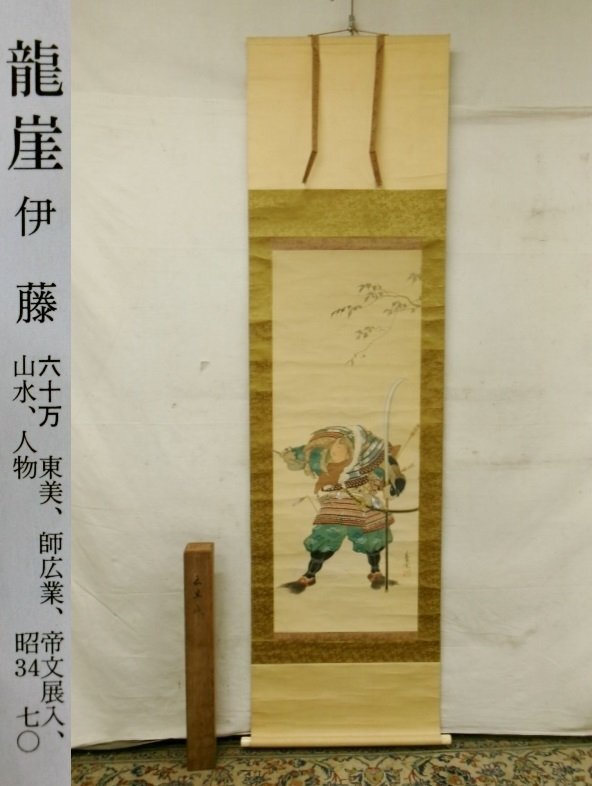 龍崖
伊藤
六十万 東美、師広業、帝文展入、
山水、人物 昭34 七〇